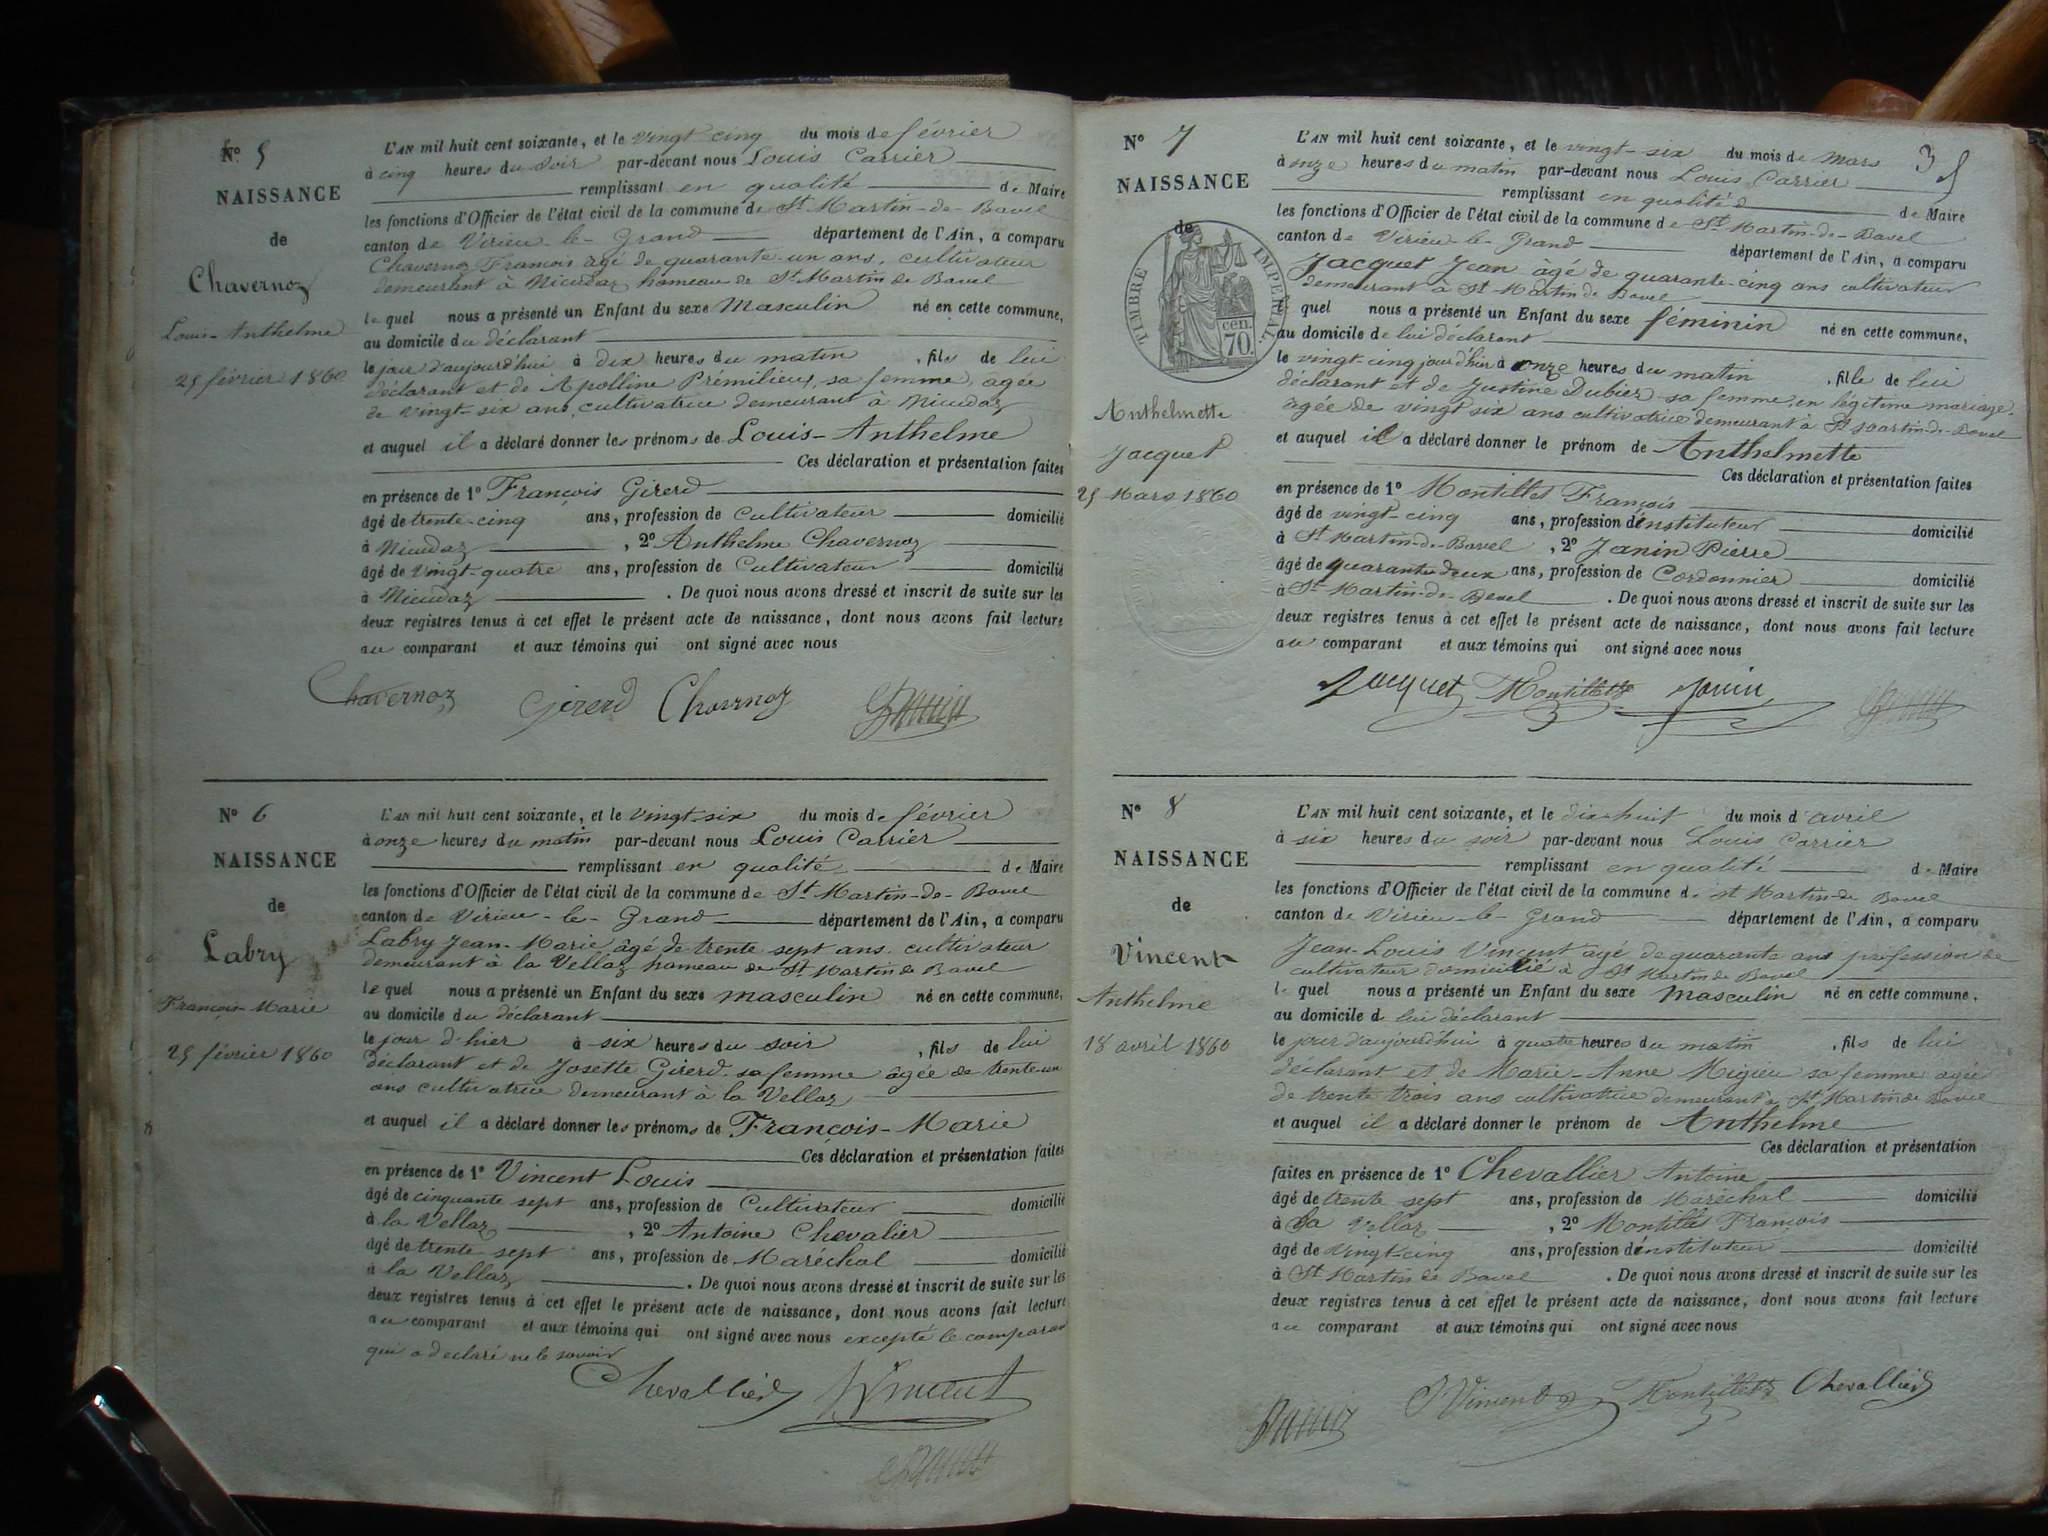 N° 5
NAISSANCE
de
Chavernoz
Louis-Anthelme
25 février 1860
L'AN mil huit cent soixante, et le vingt-cinq du mois de février
à cinq heures du soir par-devant nous Louis Carrier
remplissant en qualité de Maire
les fonctions d'Officier de l'état civil de la commune de St Martin-de-Bavel
canton de Virieu-le-Grand département de l'Ain, a comparu
Chavernoz François âgé de quarante-un ans, cultivateur
demeurant à hameau de St Martin de Bavel
lequel nous a présenté un Enfant du sexe Masculin né en cette commune,
au domicile du déclarant
le jour d'aujourd'hui à dix heures du matin, fils de lui
déclarant et de Apolline Prémilieux, sa femme, agée
de vingt-six ans, cultivatrice demeurant à
et auquel il a déclaré donner les prénoms de Louis-Anthelme
Ces déclaration et présentation faites
en présence de 1° François Girerd
âgé de trente-cinq ans, profession de Cultivateur domicilié
à , 2° Anthelme Chavernoz
âgé de vingt-quatre ans, profession de Cultivateur domicilié
à . De quoi nous avons dressé et inscrit de suite sur les
deux registres tenus à cet effet le présent acte de naissance, dont nous avons fait lecture
au comparant et aux témoins qui ont signé avec nous
Chavernoz Girerd Chavrnoz
N° 6
NAISSANCE
de
Labry
François-Marie
25 février 1860
L'AN mil huit cent soixante, et le vingt-six du mois de février
à onze heures du matin par-devant nous Louis Carrier
remplissant en qualité de Maire
les fonctions d'Officier de l'état civil de la commune de St Martin-de-Bavel
canton de Virieu-le-Grand département de l'Ain, a comparu
Labry Jean-Marie âgé de trente sept ans, cultivateur
demeurant à la Vellaz hameau de St Martin de Bavel
lequel nous a présenté un Enfant du sexe masculin né en cette commune,
au domicile du déclarant
le jour d'hier à six heures du soir, fils de lui
déclarant et de Josette Girerd sa femme âgée de trente-un
ans cultivatrice demeurant à la Vellaz
et auquel il a déclaré donner les prénoms de François-Marie
Ces déclaration et présentation faites
en présence de 1° Vincent Louis
âgé de cinquante sept ans, profession de Cultivateur domicilié
à la Vellaz, 2° Antoine Chevalier
âgé de trente sept ans, profession de Maréchal domicilié
à la Vellaz. De quoi nous avons dressé et inscrit de suite sur les
deux registres tenus à cet effet le présent acte de naissance, dont nous avons fait lecture
au comparant et aux témoins qui ont signé avec nous excepté le comparant
qui a declaré ne le savoir
Chevallier Vincent
35
N° 7
NAISSANCE
de
TIMBRE IMPÉRIAL.
70 cen.
Anthelmette
Jacquet
25 Mars 1860
L'AN mil huit cent soixante, et le vingt-six du mois de Mars
à onze heures du matin par-devant nous Louis Carrier
remplissant en qualité de Maire
les fonctions d'Officier de l'état civil de la commune de St Martin-de-Bavel
canton de Virieu-le-Grand département de l'Ain, a comparu
Jacquet Jean âgé de quarante-cinq ans cultivateur
demeurant à St Martin de Bavel
quel nous a présenté un Enfant du sexe féminin né en cette commune,
au domicile de lui déclarant
le vingt-cinq jour d'hier à onze heures du matin, fille de lui
déclarant et de Justine Dubiez sa femme, en légitime mariage,
âgée de vingt six ans cultivatrice demeurant à St Martin-de-Bavel
et auquel il a déclaré donner le prénom de Anthelmette
Ces déclaration et présentation faites
en présence de 1° Montillet François
âgé de vingt-cinq ans, profession d'instituteur domicilié
à St Martin-de-Bavel, 2° Janin Pierre
âgé de quarante deux ans, profession de Cordonnier domicilié
à St Martin-de-Bavel. De quoi nous avons dressé et inscrit de suite sur les
deux registres tenus à cet effet le présent acte de naissance, dont nous avons fait lecture
au comparant et aux témoins qui ont signé avec nous
Jacquet Montillet Janin
N° 8
NAISSANCE
de
Vincent
Anthelme
18 avril 1860
L'AN mil huit cent soixante, et le dix-huit du mois d'avril
à six heures du soir par-devant nous Louis Carrier
remplissant en qualité de Maire
les fonctions d'Officier de l'état civil de la commune de St Martin-de Bavel
canton de Virieu-le-Grand département de l'Ain, a comparu
Jean-Louis Vincent agé de quarante ans profession de
cultivateur domicilié à St Martin de Bavel
lequel nous a présenté un Enfant du sexe Masculin né en cette commune,
au domicile de lui déclarant
le jour d'aujourd'hui à quatre heures du matin, fils de lui
déclarant et de Marie-Anne Migieu sa femme agée
de trente trois ans cultivatrice demeurant à St Martin de Bavel
et auquel il a déclaré donner le prénom de Anthelme
Ces déclaration et présentation
faites en présence de 1° Chevallier Antoine
âgé de trente sept ans, profession de Maréchal domicilié
à la Vellaz, 2° Montillet François
âgé de vingt-cinq ans, profession d'instituteur domicilié
à St Martin de Bavel. De quoi nous avons dressé et inscrit de suite sur les
deux registres tenus à cet effet le présent acte de naissance, dont nous avons fait lecture
au comparant et aux témoins qui ont signé avec nous
Vincent Montillet Chevallier